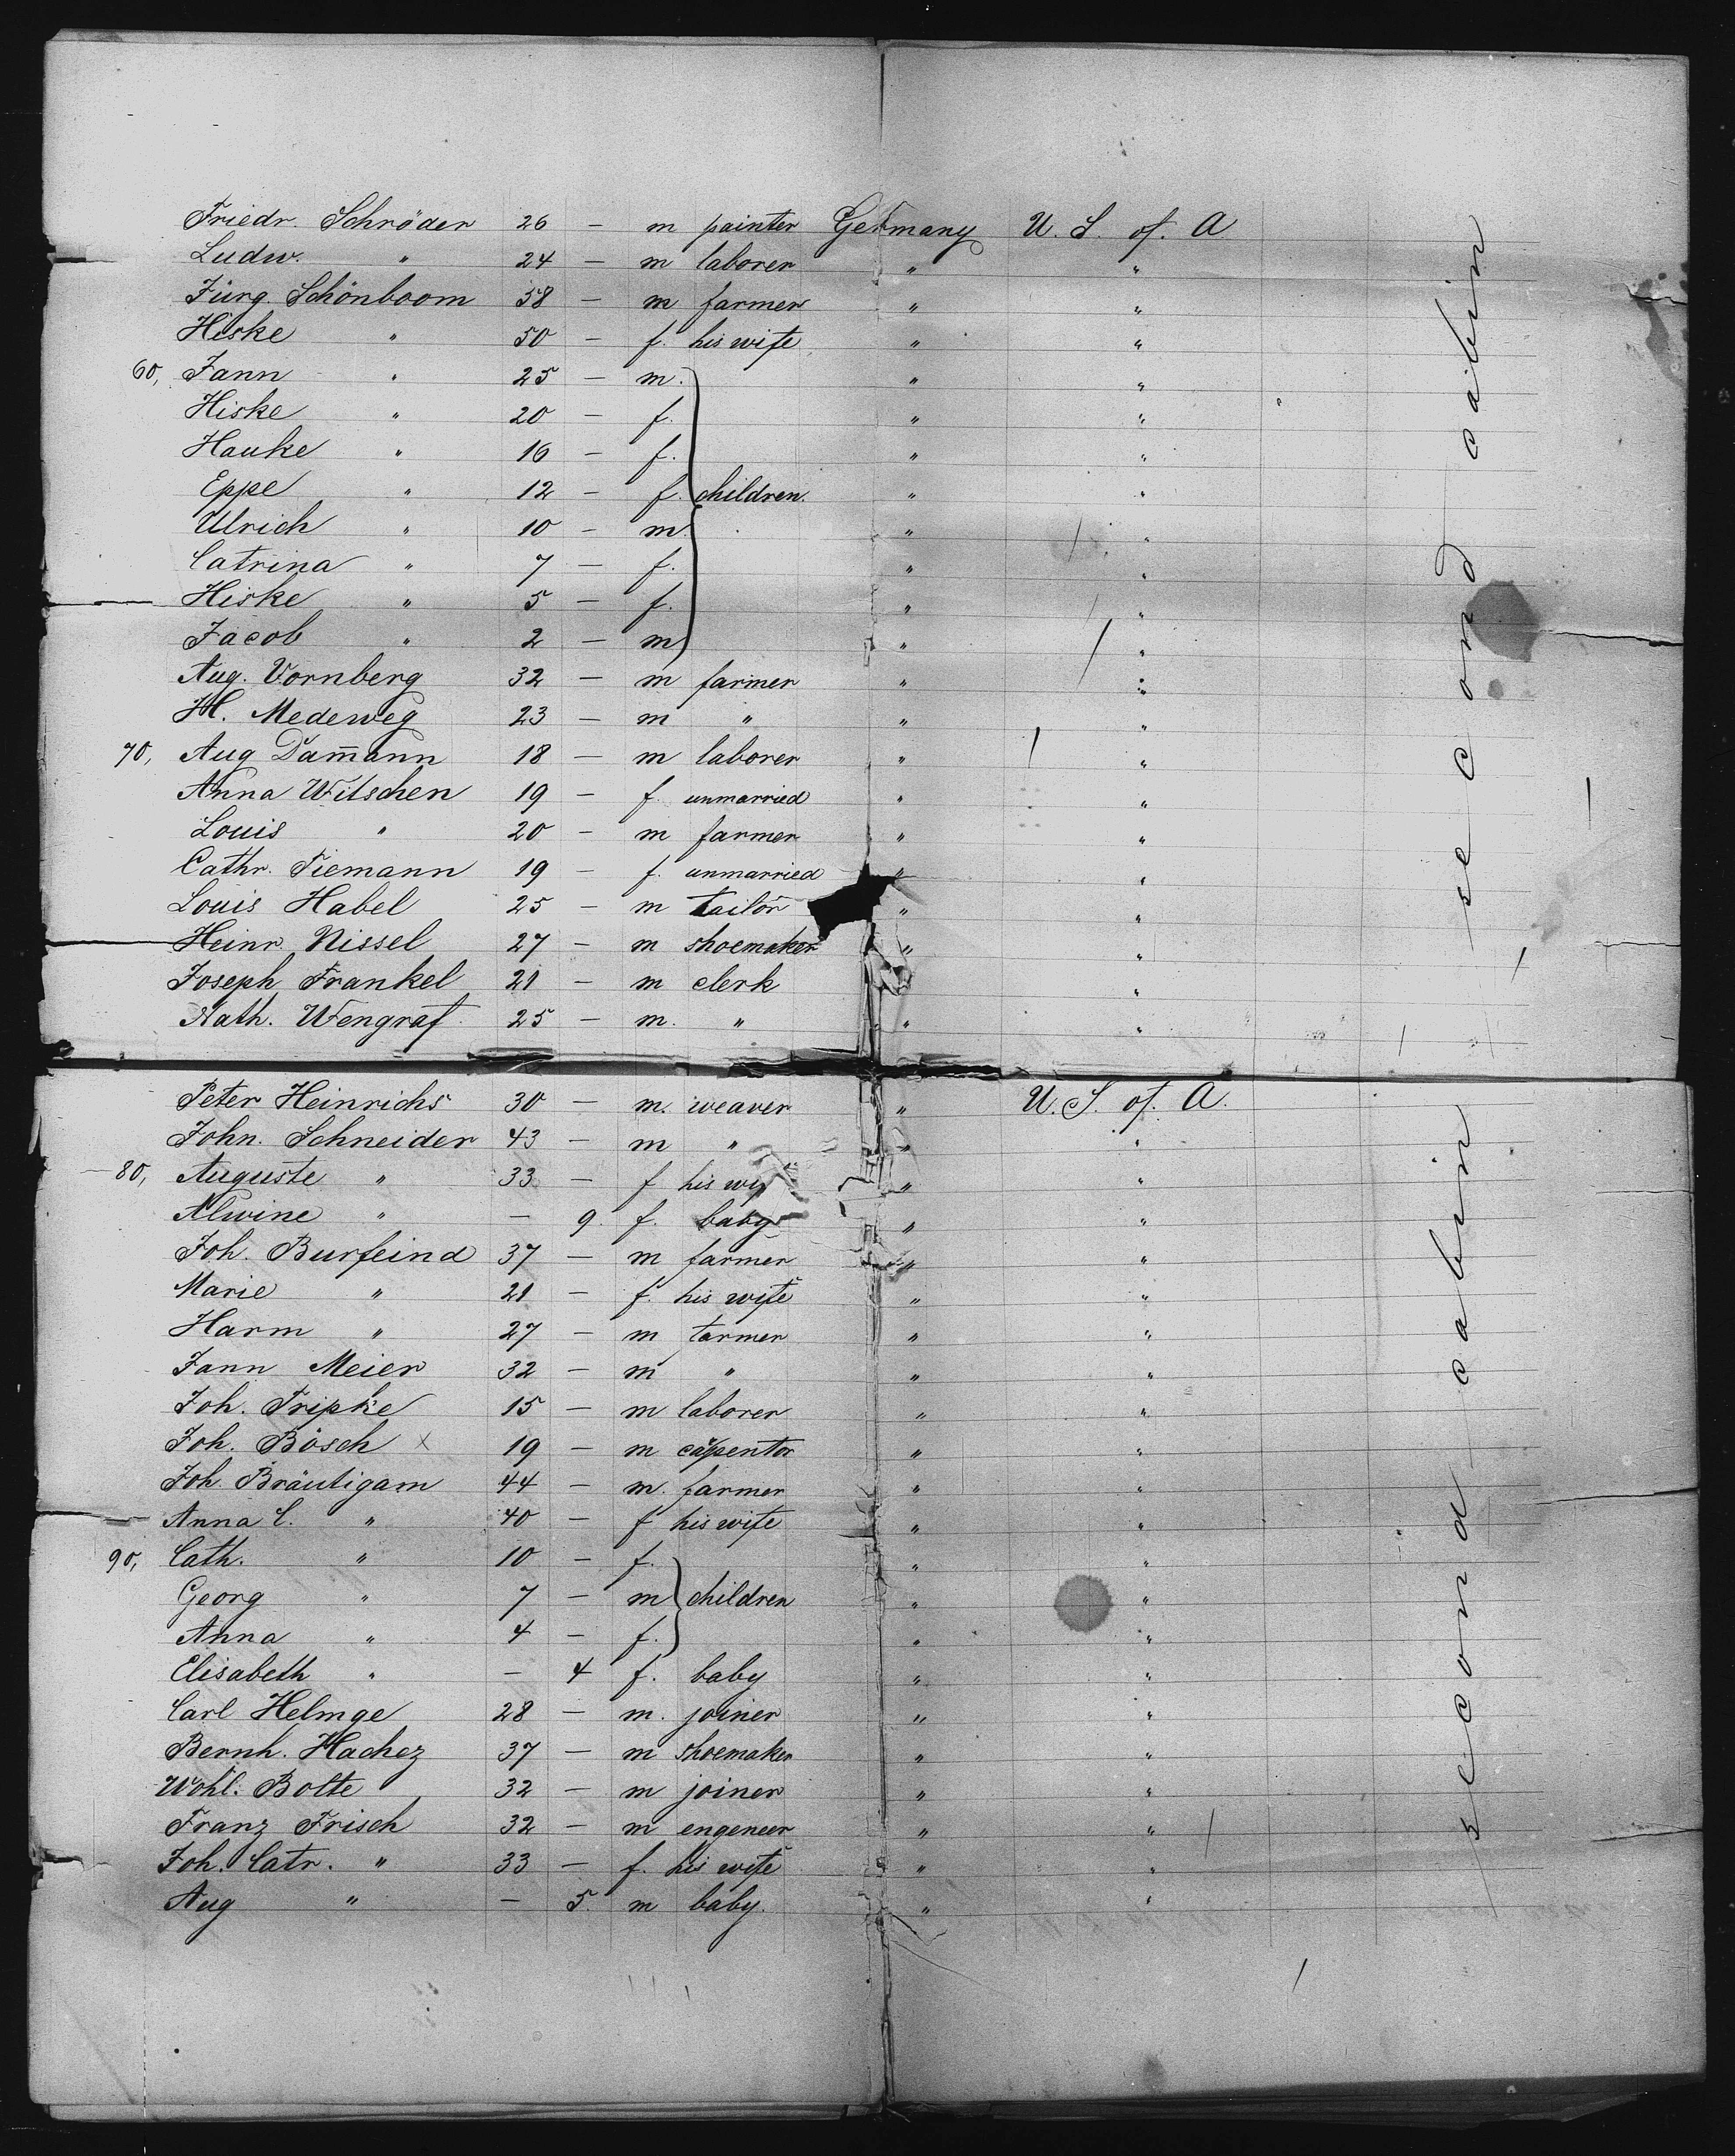 Friedr. Schröder 26 — m painter Germany U. S. of. A
Ludw. " 24 — m laborer " "
Jürg. Schönboom 58 — m farmer " "
Hiske " 50 — f. his wife " "
60, Jann " 25 — m. " "
Hiske " 20 — f. " "
Hauke " 16 — f. " "
Eppe " 12 — f. children. " "
Ulrich " 10 — m. " "
Catrina " 7 — f. " "
Hiske " 5 — f. " "
Jacob " 2 — m " "
Aug. Vornberg 32 — m farmer " "
H. Medeweg 23 — m " " "
70, Aug Dam̄ann 18 — m laborer " "
Anna Witschen 19 — f. unmarried " "
Louis " 20 — m farmer " "
Cathr. Tiemann 19 — f. unmarried " "
Louis Habel 25 — m tailor " "
Heinr. Nissel 27 — m shoemaker " "
Joseph Frankel 21 — m clerk "
Nath. Wengraf 25 — m. " " "
second cabin
Peter Heinrichs 30 — m. weaver " U. S. of. A.
John. Schneider 43 — m " " "
80, Auguste " 33 — f his " "
Alwine " — 9. f. baby " "
Joh. Burfeind 37 — m farmer " "
Marie " 21 — f. his wife " "
Harm " 27 — m farmer " "
Jann Meier 32 — m " " "
Joh. Tripke 15 — m laborer " "
Joh. Bösch x 19 — m carpentor " "
Joh. Bräutigam 44 — m. farmer " "
Anna C. " 40 — f his wife " "
90, Cath. " 10 — f. " "
Georg " 7 — m children " "
Anna " 4 — f. " "
Elisabeth " — 4 f. baby " "
Carl Helmge 28 — m. joiner " "
Bernh. Hachez 37 — m shoemaker " "
Wohl. Bolte 32 — m joiner " "
Franz Frisch 32 — m engeneer " "
Joh. Catr. " 33 — f. his wife " "
Aug " — 5. m baby. " "
second cabin